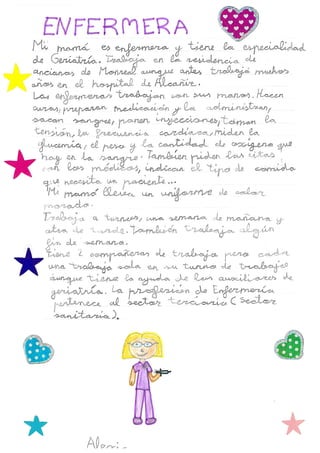 ENFERMERA
Mi mamá es enfermera y tiene la especialidad
de Geriatría. Trabaja en la residencia de
ancianos de Monreal aunque antes trabajó muchos
años en el hospital de Alcañiz.
Las enfermeras trabajan con sus manos. Hacen
curas, preparan medicación y la administran,
sacan sangre, ponen inyecciones, toman la
tensión, la frecuencia cardíaca, miden la
glucemia, el peso y la cantidad de oxígeno que
hay en la sangre. También piden las citas
con los médicos, indican el tipo de comida
que necesita un paciente...
Mi mamá lleva un uniforme de color
morado.
Trabaja a turnos, una semana de mañana y
otra de tarde. También trabaja algún
fin de semana.
Tiene 2 compañeras de trabajo pero cada
una trabaja sola en su turno de trabajo
aunque tiene la ayuda de las auxiliares de
geriatría. La profesión de Enfermería
pertenece al sector terciario (Sector
sanitario).